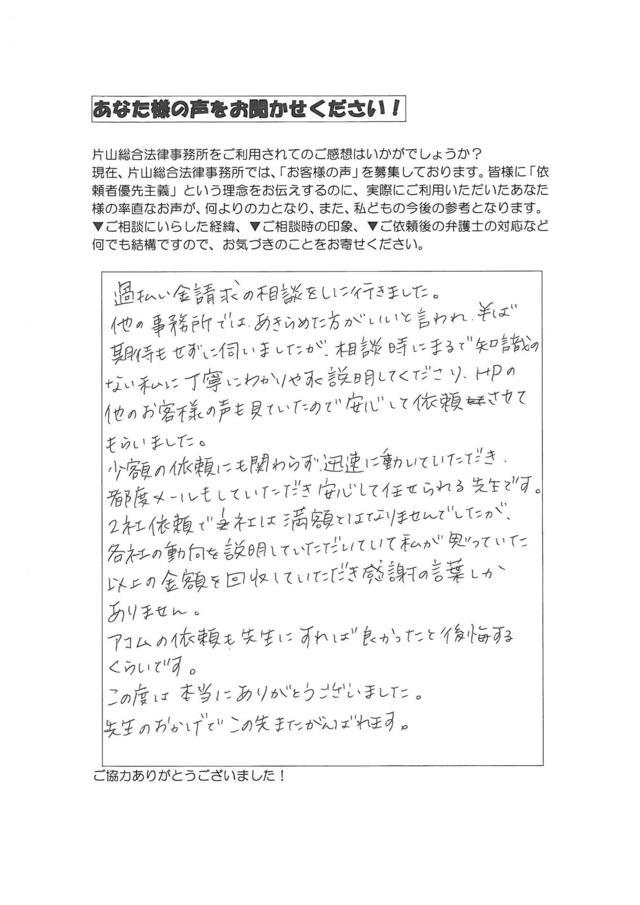 あなた様の声をお聞かせください！
片山総合法律事務所をご利用されてのご感想はいかがでしょうか？
現在、片山総合法律事務所では、「お客様の声」を募集しております。皆様に「依
頼者優先主義」という理念をお伝えするのに、実際にご利用いただいたあなた
様の率直なお声が、何よりの力となり、また、私どもの今後の参考となります。
▼ご相談にいらした経緯、▼ご相談時の印象、▼ご依頼後の弁護士の対応など
何でも結構ですので、お気づきのことをお寄せください。
過払い金請求の相談をしに行きました。
他の事務所では、あきらめた方がいいと言われ、半ば
期待もせずに伺いましたが、相談時にまるで知識の
ない私に丁寧にわかりやすく説明してくださり、HPの
他のお客様の声も見ていたので安心して依頼させて
もらいました。
少額の依頼にも関わらず、迅速に動いていただき、
都度メールもしていただき安心して任せられる先生です。
2社依頼で 社は満額とはなりませんでしたが、
各社の動向を説明していただいていて私が思っていた
以上の金額を回収していただき感謝の言葉しか
ありません。
アコムの依頼も先生にすれば良かったと後悔する
くらいです。
この度は本当にありがとうございました。
先生のおかげでこの先またがんばれます。
ご協力ありがとうございました！